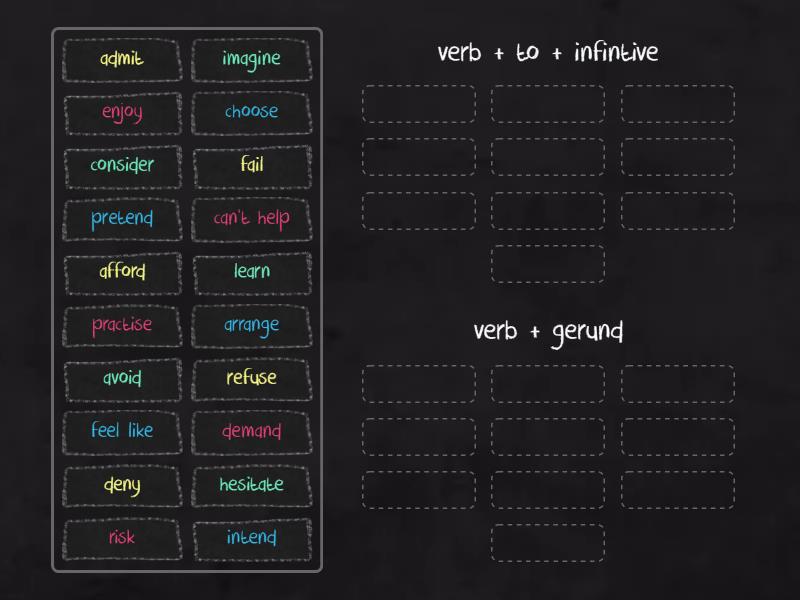 admit
imagine
enjoy
choose
consider
fail
pretend
can't help
afford
learn
practise
arrange
avoid
refuse
feel like
demand
deny
hesitate
risk
intend
verb + to + infintive
verb + gerund